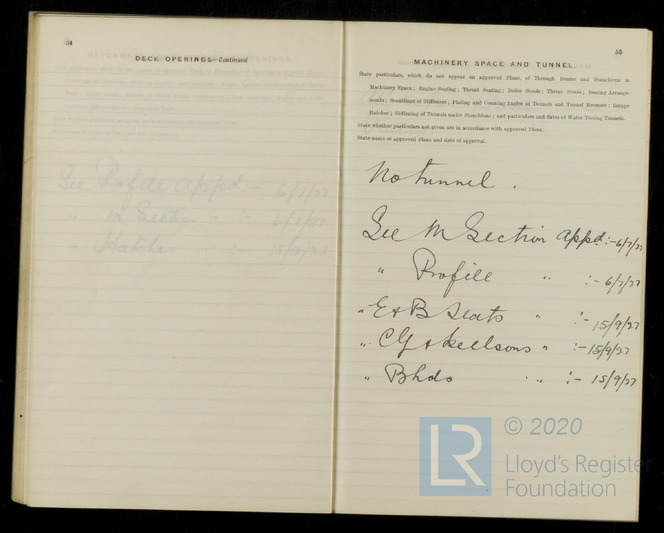 54
DECK OPENINGS—Continued.
See Profile appd :- 6/7/27
" M Section " :- 6/7/27
" Hatches :- 15/9/27
55
MACHINERY SPACE AND TUNNEL.
State particulars, which do not appear on approved Plans, of Through Beams and Stanchions in
Machinery Space; Engine Seating; Thrust Seating; Boiler Stools; Thrust Stools; Boxing Arrange-
ments; Scantlings of Stiffeners; Plating and Coaming Angles of Tunnels and Tunnel Recesses; Escape
Hatches; Stiffening of Tunnels under Stanchions; and particulars and dates of Water Testing Tunnels.
State whether particulars not given are in accordance with approved Plans.
State name of approved Plans and date of approval.
No tunnel.
See M Section appd :- 6/7/27
" Profile " :- 6/7/27
" E & B Seats " :- 15/9/27
" CG & keelsons " :- 15/9/27
" Bhds " :- 15/9/27
LR
© 2020
Lloyd's Register
Foundation